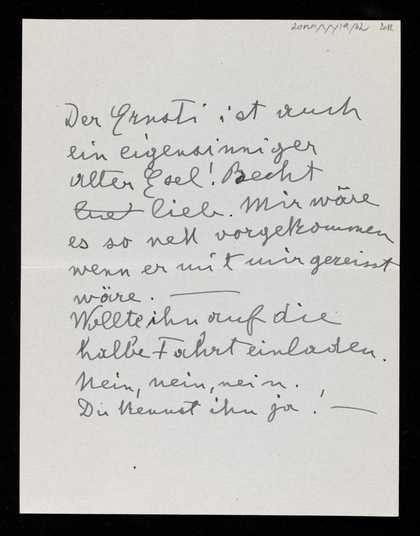 Der Ernsti ist auch
ein eigensinniger
alter Esel! Becht
lieb. Mir wäre
es so nett vorgekommen
wenn er mit mir gereisst
wäre. —
Wollte ihn auf die
halbe Fahrt einladen.
Nein, nein, nein.
Du kennst ihn ja! —